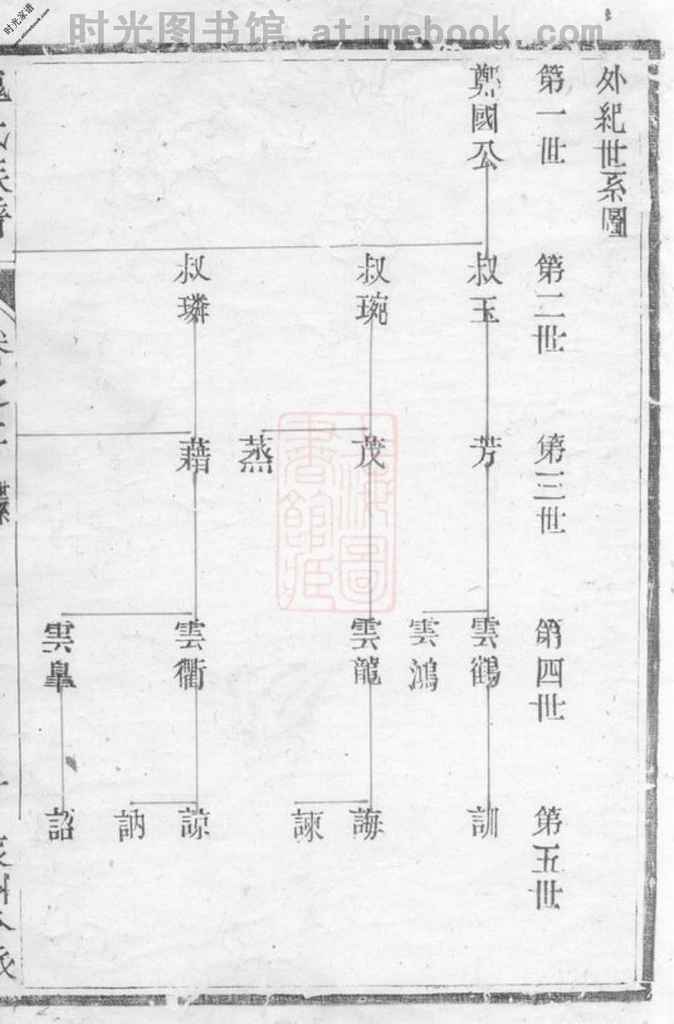 时光图书馆 atimebook.com
时光家谱
外紀世系圖
第一世
鄭國公
第二世
叔玉
叔琬
叔璘
第三世
芳
茂
蒸
藉
第四世
雲鶴
雲鴻
雲龍
雲衢
雲皐
第五世
訓
誨
諫
諒
訥
詔
上海圖書館藏
氏族譜
卷之